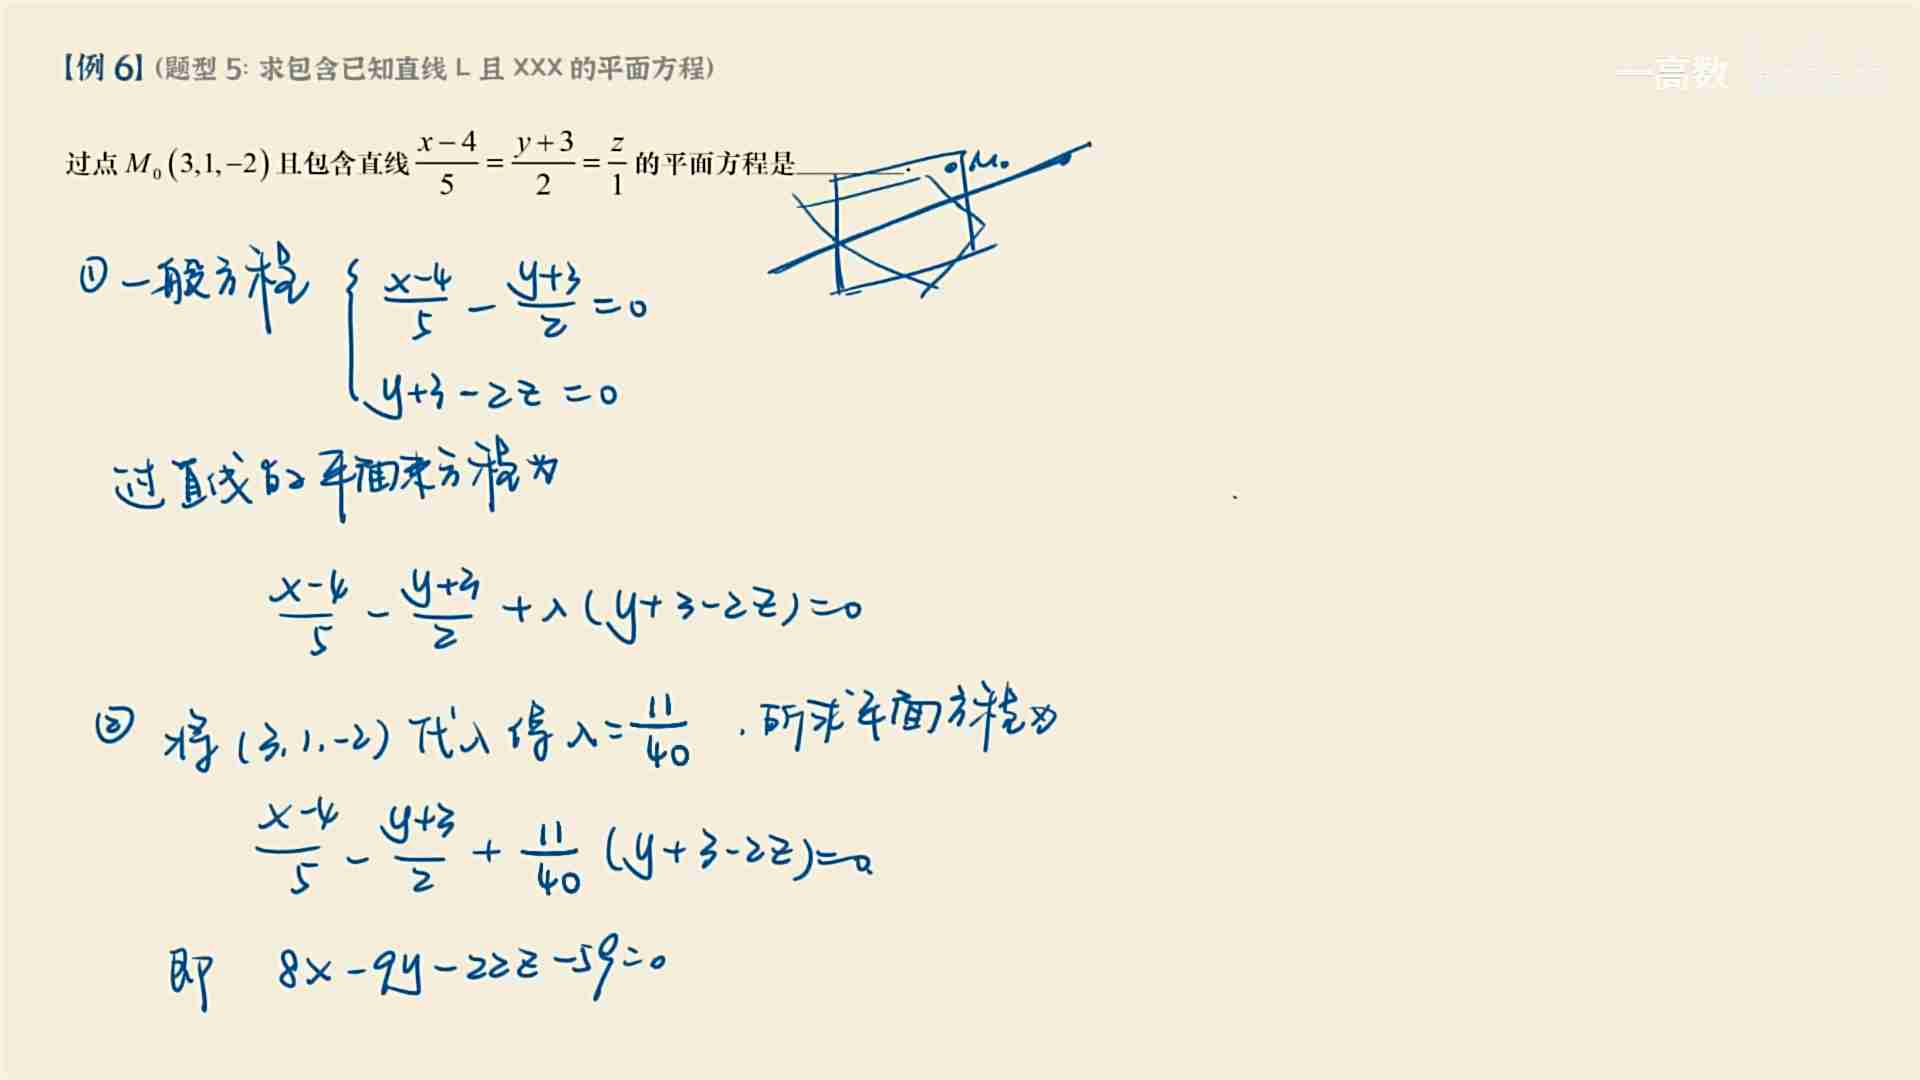 【例 6】(题型 5: 求包含已知直线 L 且 XXX 的平面方程)
一高数
过点 M₀(3,1,−2) 且包含直线 (x−4)/5 = (y+3)/2 = z/1 的平面方程是______.
M₀
① 一般方程 { (x−4)/5 − (y+3)/2 = 0
y+3−2z = 0
过直线的平面束方程为
(x−4)/5 − (y+3)/2 + λ(y+3−2z)=0
② 将 (3,1,−2) 代入得 λ = 11/40 . 所求平面方程为
(x−4)/5 − (y+3)/2 + 11/40 (y+3−2z)=0
即 8x−9y−22z−59=0